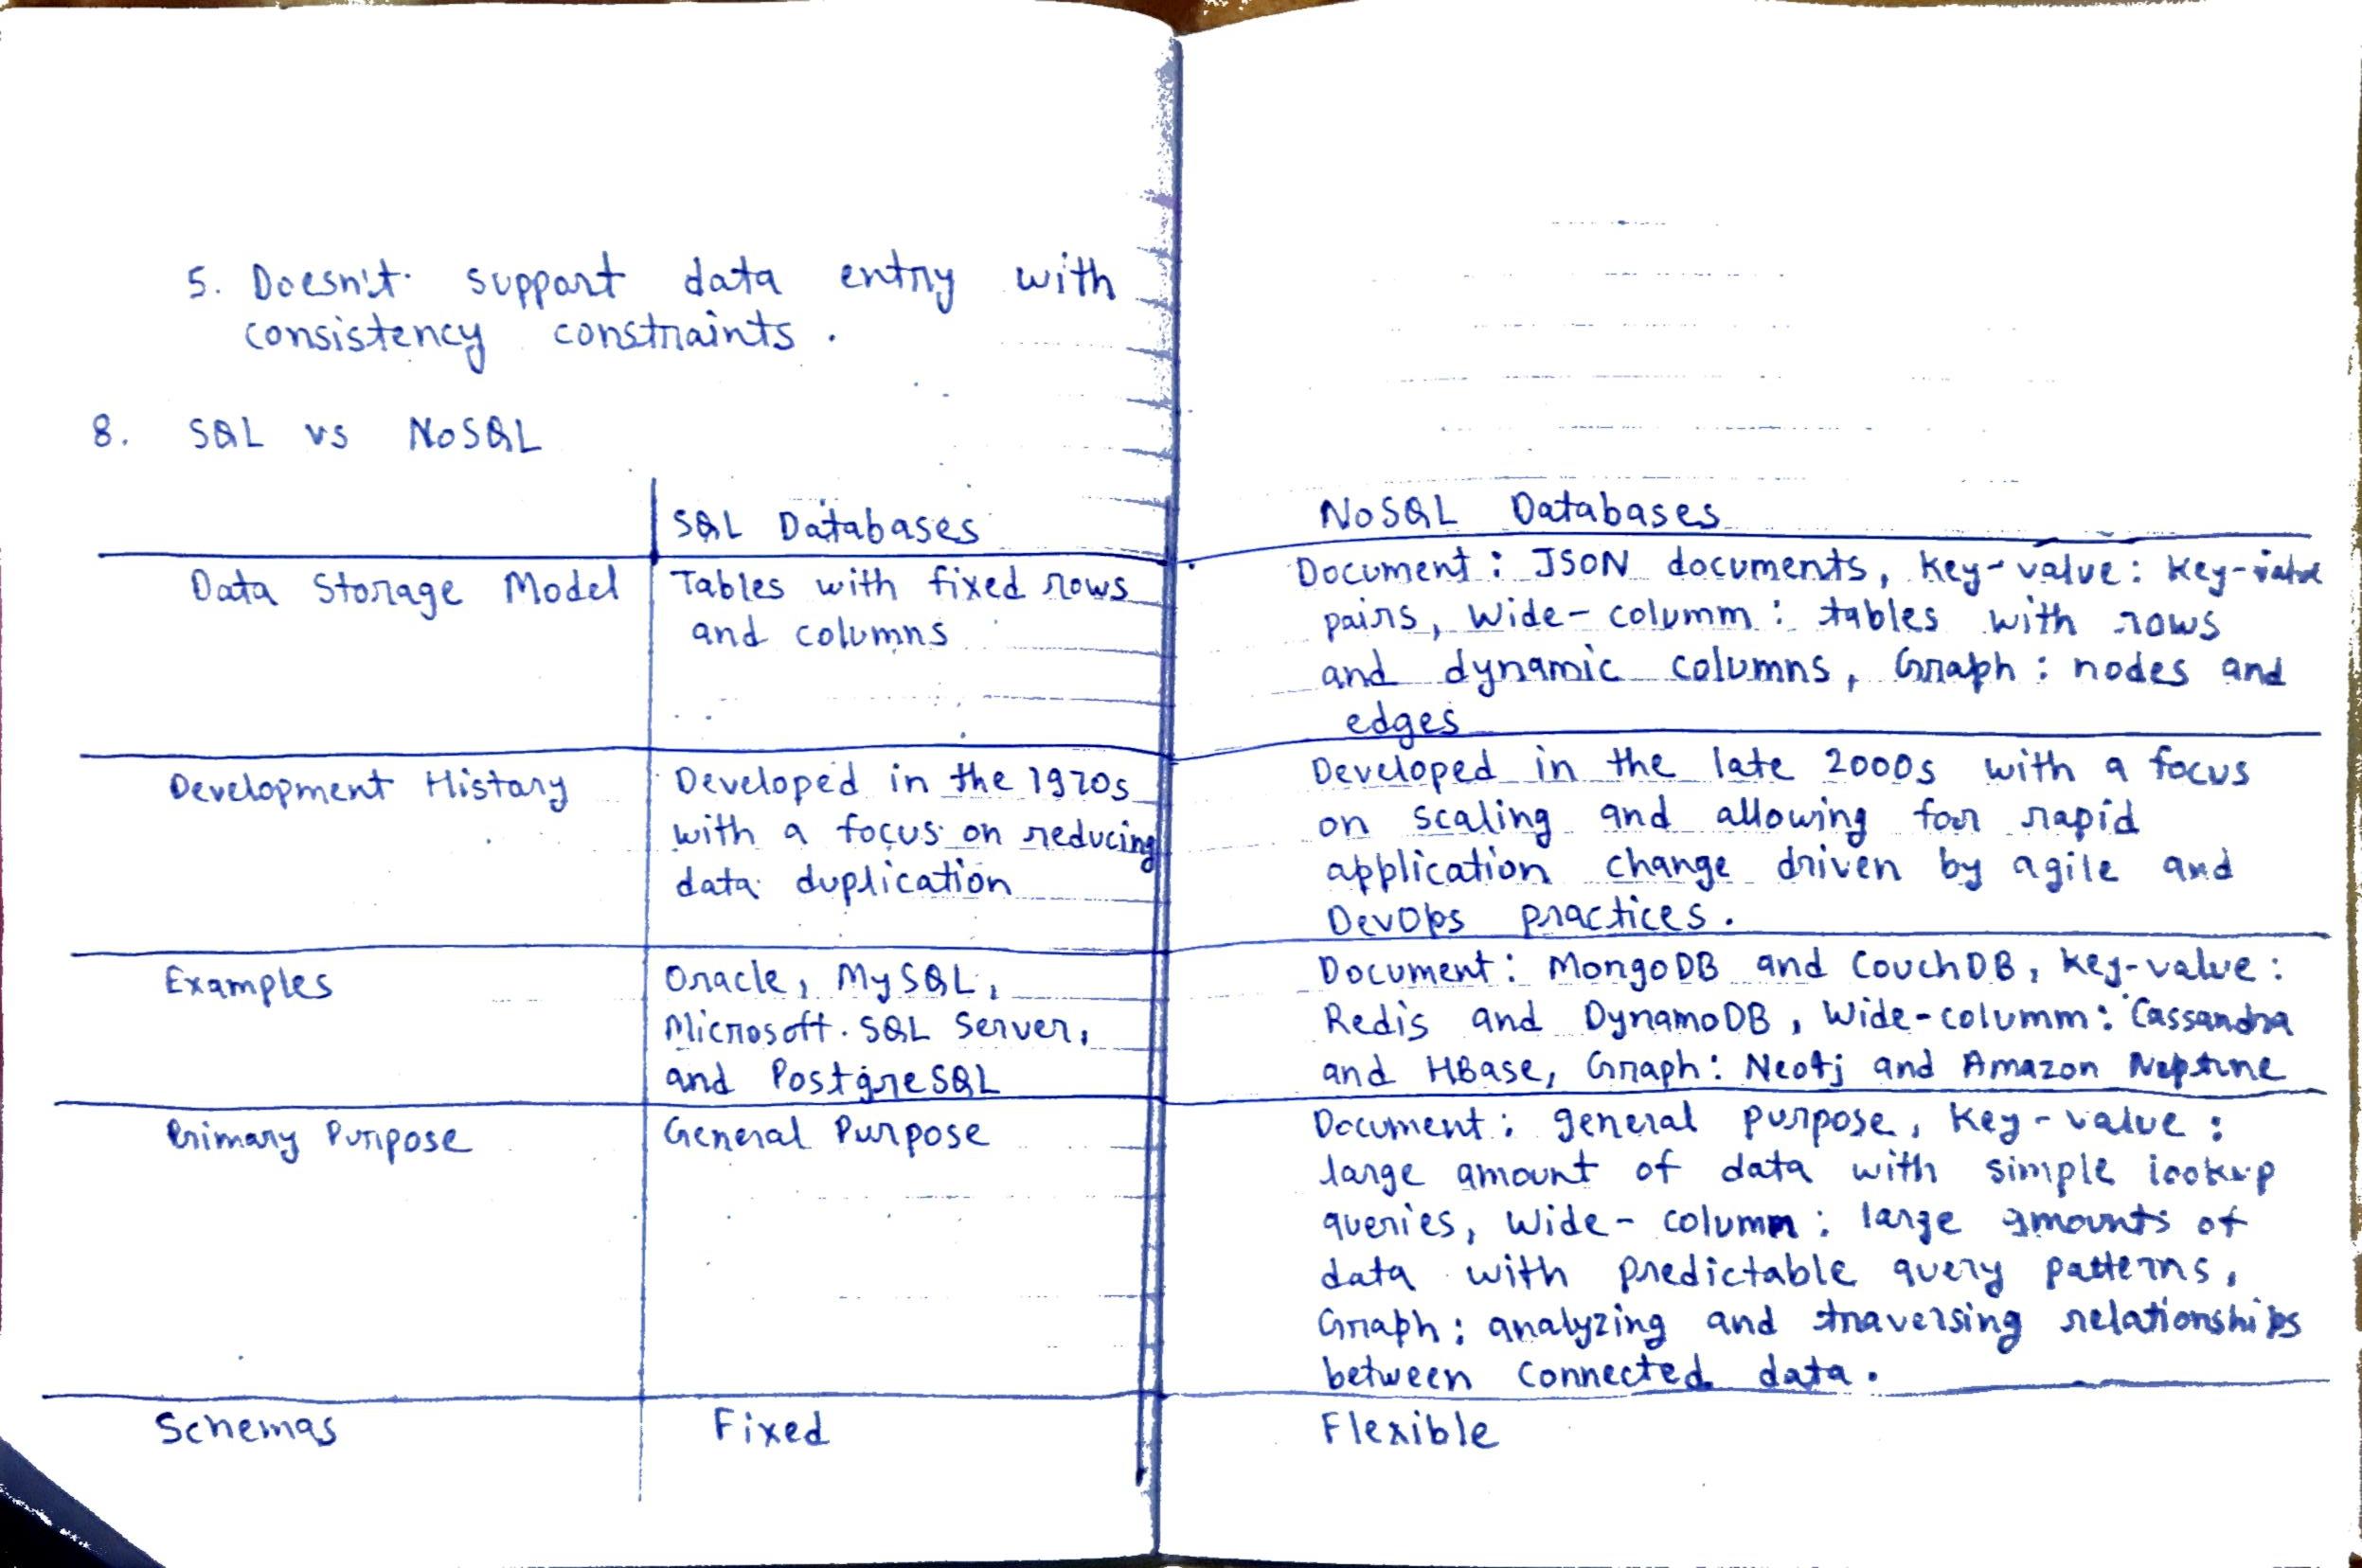 5. Doesn't support data entry with
consistency constraints.
8. SQL vs NoSQL
SQL Databases
NoSQL Databases
Data Storage Model
Tables with fixed rows
and columns
Document: JSON documents, Key-value: Key-value
pairs, Wide-column: tables with rows
and dynamic columns, Graph: nodes and
edges
Development History
Developed in the 1970s
with a focus on reducing
data duplication
Developed in the late 2000s with a focus
on scaling and allowing for rapid
application change driven by agile and
DevOps practices.
Examples
Oracle, MySQL,
Microsoft SQL Server,
and PostgreSQL
Document: MongoDB and CouchDB, Key-value:
Redis and DynamoDB, Wide-column: Cassandra
and HBase, Graph: Neo4j and Amazon Neptune
Primary Purpose
General Purpose
Document: general purpose, Key-value:
large amount of data with simple lookup
queries, Wide-column: large amounts of
data with predictable query patterns,
Graph: analyzing and traversing relationships
between connected data.
Schemas
Fixed
Flexible